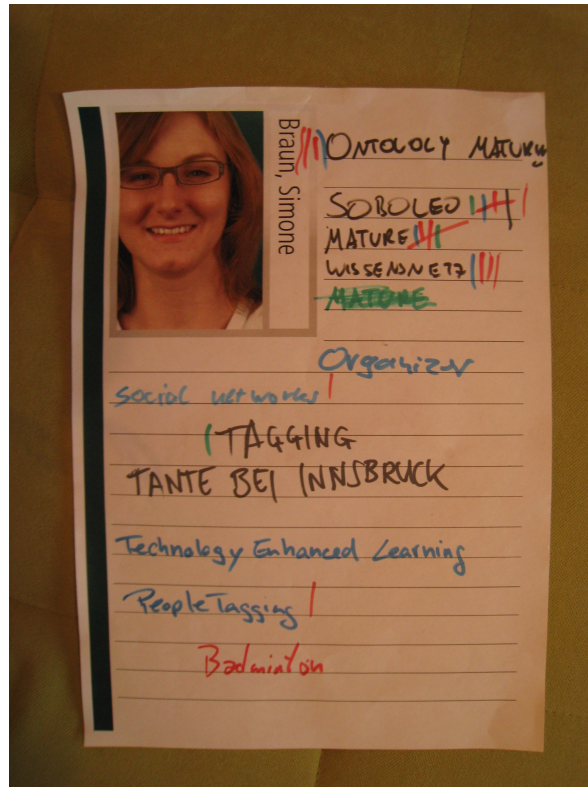 Braun, Simone
ONTOLOGY MATURIN
SOBOLEO
MATURE
WISSENSNETZ
MATURE
Organizer
social networks
TAGGING
TANTE BEI INNSBRUCK
Technology Enhanced Learning
People Tagging
Badminton